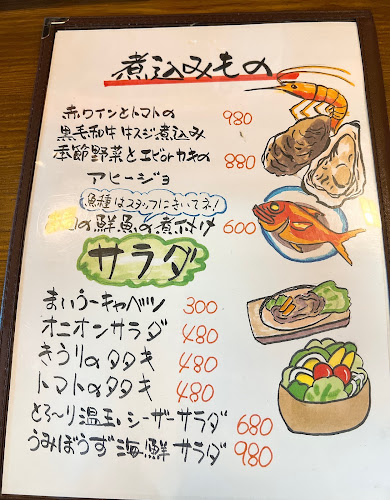 煮込みもの
赤ワインとトマトの 980
黒毛和牛はスジ煮込み
季節野菜とエビorカキの 880
アヒージョ
魚種はスタッフにきいてネ!
の鮮魚の煮付け 600
サラダ
まいうーキャベツ 300
オニオンサラダ 480
きうりのタタキ 480
トマトのタタキ 480
とろ〜り温玉シーザーサラダ 680
うみぼうず海鮮サラダ 980